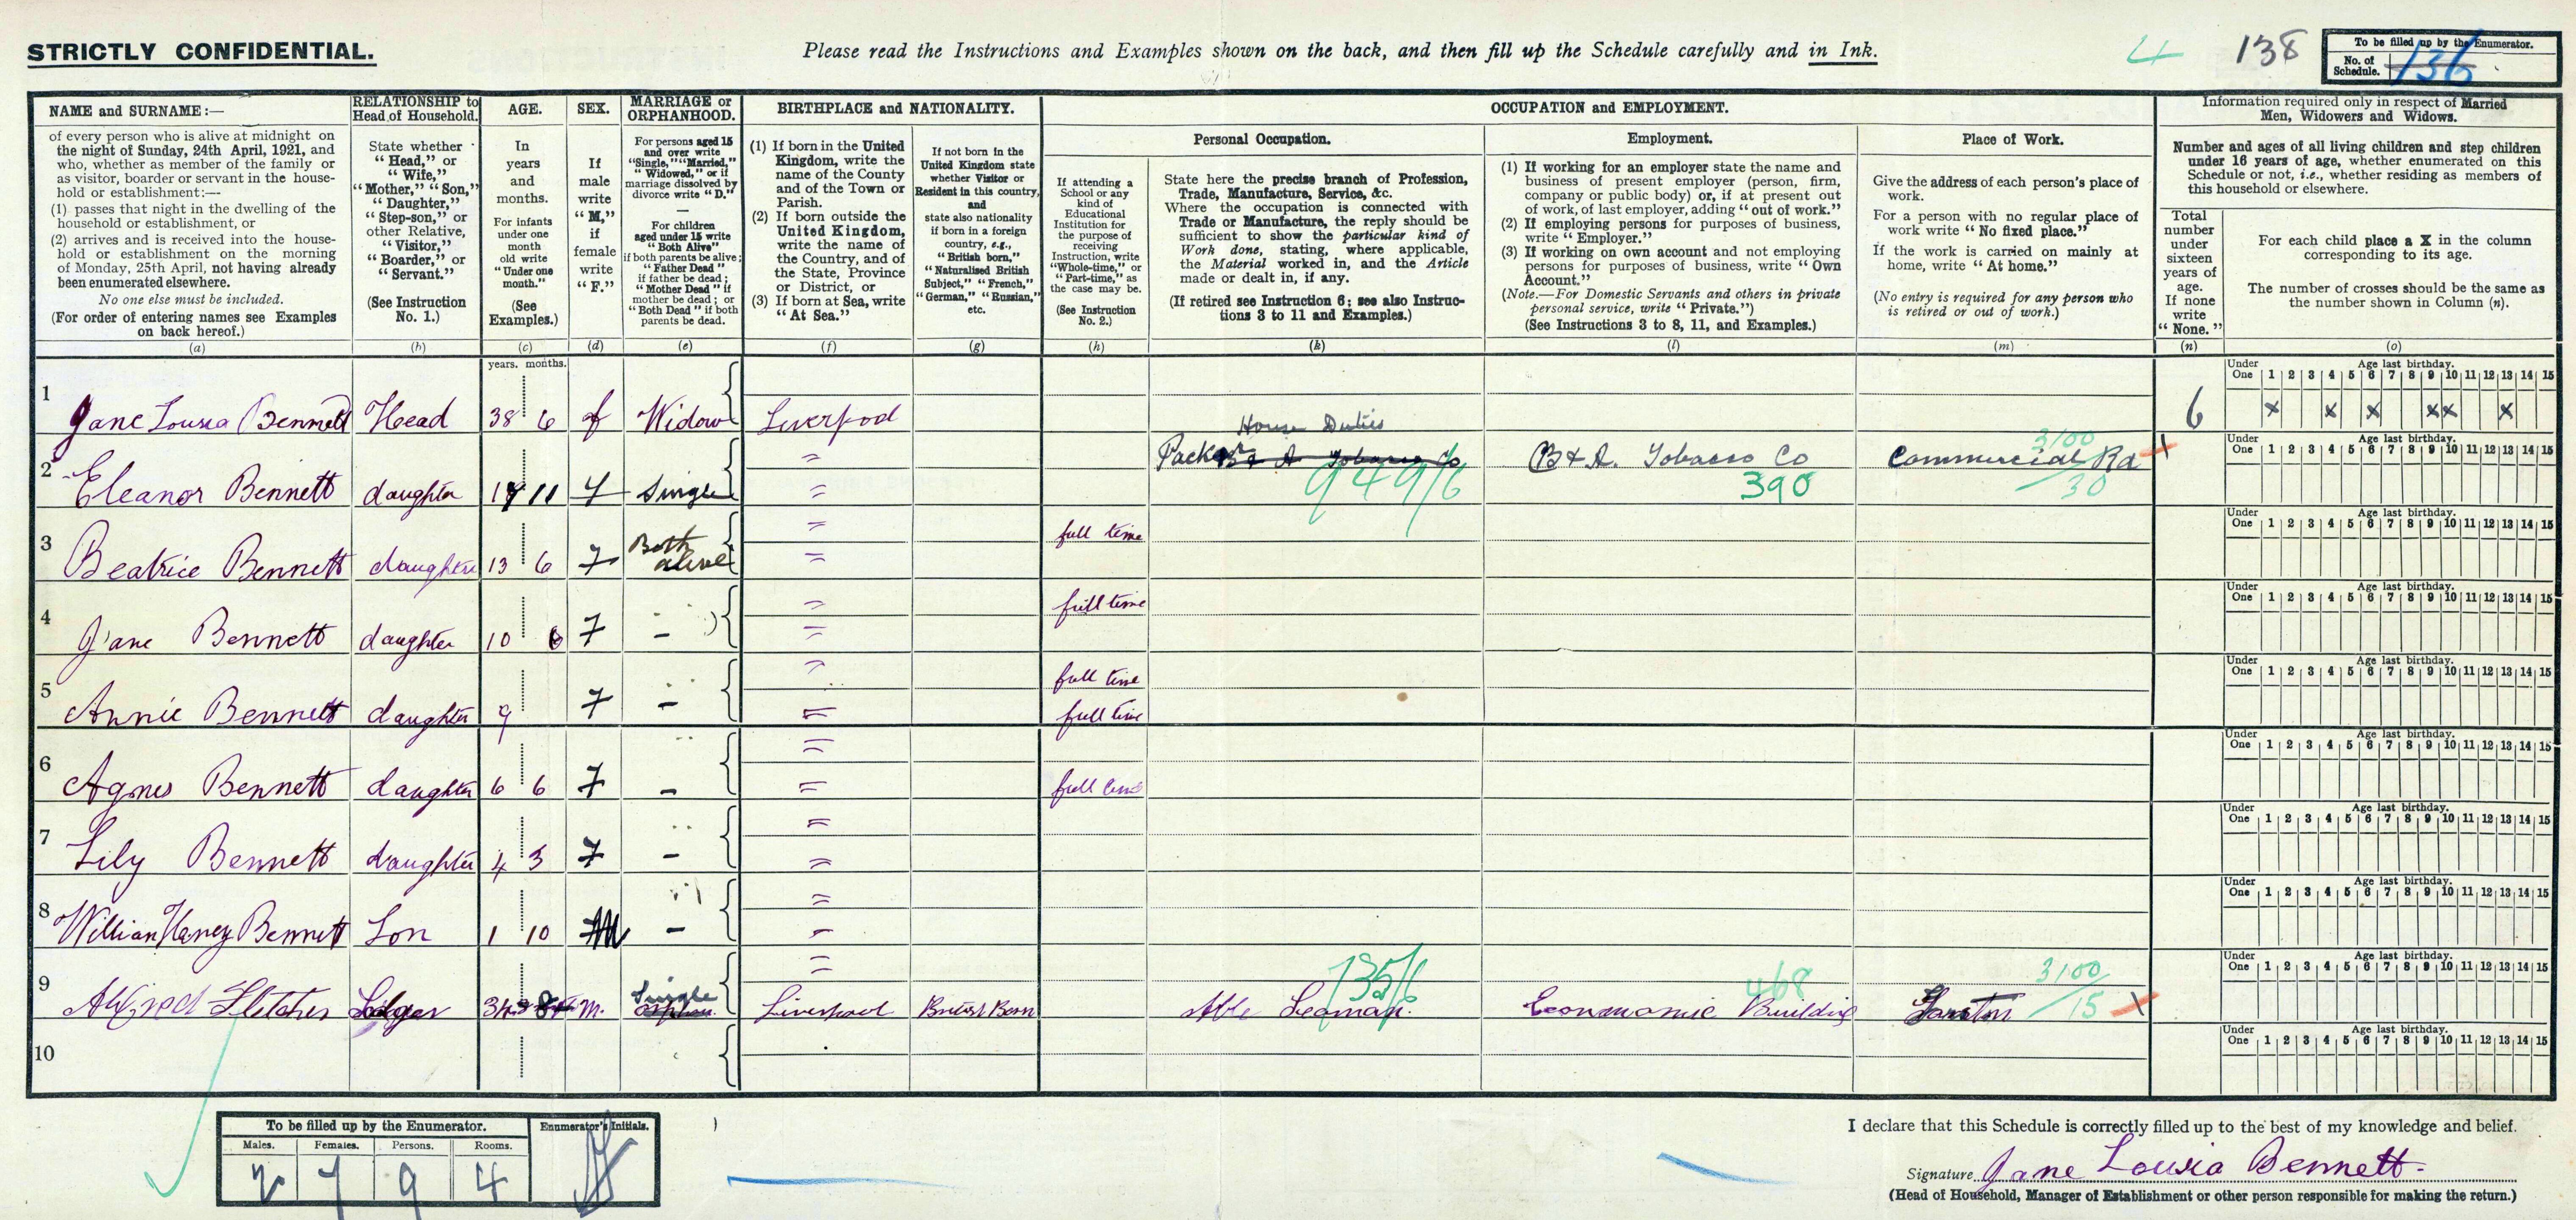 STRICTLY CONFIDENTIAL.
Please read the Instructions and Examples shown on the back, and then fill up the Schedule carefully and in Ink.
4 138
To be filled up by the Enumerator.
No. of Schedule. 136
NAME and SURNAME:—
of every person who is alive at midnight on
the night of Sunday, 24th April, 1921, and
who, whether as member of the family or
as visitor, boarder or servant in the house-
hold or establishment:—
(1) passes that night in the dwelling of the
household or establishment, or
(2) arrives and is received into the house-
hold or establishment on the morning
of Monday, 25th April, not having already
been enumerated elsewhere.
No one else must be included.
(For order of entering names see Examples
on back hereof.)
(a)
RELATIONSHIP to
Head of Household.
State whether
"Head," or
"Wife,"
"Mother," "Son,"
"Daughter,"
"Step-son," or
other Relative,
"Visitor,"
"Boarder," or
"Servant."
(See Instruction
No. 1.)
(b)
AGE.
In
years
and
months.
For infants
under one
month
old write
"Under one
month."
(See
Examples.)
(c)
SEX.
If
male
write
"M,"
if
female
write
"F."
(d)
MARRIAGE or
ORPHANHOOD.
For persons aged 15
and over write
"Single," "Married,"
"Widowed," or if
marriage dissolved by
divorce write "D."
For children
aged under 15 write
"Both Alive"
if both parents be alive;
"Father Dead"
if father be dead;
"Mother Dead" if
mother be dead; or
"Both Dead" if both
parents be dead.
(e)
BIRTHPLACE and NATIONALITY.
(1) If born in the United
Kingdom, write the
name of the County
and of the Town or
Parish.
(2) If born outside the
United Kingdom,
write the name of
the Country, and of
the State, Province
or District, or
(3) If born at Sea, write
"At Sea."
(f)
If not born in the
United Kingdom state
whether Visitor or
Resident in this country,
and
state also nationality
if born in a foreign
country, e.g.,
"British born,"
"Naturalised British
Subject," "French,"
"German," "Russian,"
etc.
(g)
OCCUPATION and EMPLOYMENT.
If attending a
School or any
kind of
Educational
Institution for
the purpose of
receiving
Instruction, write
"Whole-time," or
"Part-time," as
the case may be.
(See Instruction
No. 2.)
(h)
Personal Occupation.
State here the precise branch of Profession,
Trade, Manufacture, Service, &c.
Where the occupation is connected with
Trade or Manufacture, the reply should be
sufficient to show the particular kind of
Work done, stating, where applicable,
the Material worked in, and the Article
made or dealt in, if any.
(If retired see Instruction 6; see also Instruc-
tions 3 to 11 and Examples.)
(k)
Employment.
(1) If working for an employer state the name and
business of present employer (person, firm,
company or public body) or, if at present out
of work, of last employer, adding "out of work."
(2) If employing persons for purposes of business,
write "Employer."
(3) If working on own account and not employing
persons for purposes of business, write "Own
Account."
(Note.—For Domestic Servants and others in private
personal service, write "Private.")
(See Instructions 3 to 8, 11, and Examples.)
(l)
Place of Work.
Give the address of each person's place of
work.
For a person with no regular place of
work write "No fixed place."
If the work is carried on mainly at
home, write "At home."
(No entry is required for any person who
is retired or out of work.)
(m)
Information required only in respect of Married
Men, Widowers and Widows.
Number and ages of all living children and step children
under 16 years of age, whether enumerated on this
Schedule or not, i.e., whether residing as members of
this household or elsewhere.
Total
number
under
sixteen
years of
age.
If none
write
"None."
(n)
For each child place a X in the column
corresponding to its age.
The number of crosses should be the same as
the number shown in Column (n).
(o)
years. months.
Under One Age last birthday. 1 2 3 4 5 6 7 8 9 10 11 12 13 14 15
1 Jane Lousia Bennett Head 38 6 f Widow Liverpool House Duties 6 x x x x x x
Under One Age last birthday. 1 2 3 4 5 6 7 8 9 10 11 12 13 14 15
2 Eleanor Bennett daughter 11 f Single " " Packer B & A Tobacco Co 949/6 B & A. Tobacco Co 390 Commercial Rd 3100/30
Under One Age last birthday. 1 2 3 4 5 6 7 8 9 10 11 12 13 14 15
3 Beatrice Bennett daughter 13 6 F Both alive " " full time
Under One Age last birthday. 1 2 3 4 5 6 7 8 9 10 11 12 13 14 15
4 Jane Bennett daughter 10 6 F - " " full time
Under One Age last birthday. 1 2 3 4 5 6 7 8 9 10 11 12 13 14 15
5 Annie Bennett daughter 9 F - " " full time full time
Under One Age last birthday. 1 2 3 4 5 6 7 8 9 10 11 12 13 14 15
6 Agnes Bennett daughter 6 6 F - " " full time
Under One Age last birthday. 1 2 3 4 5 6 7 8 9 10 11 12 13 14 15
7 Lily Bennett daughter 4 3 F - " "
Under One Age last birthday. 1 2 3 4 5 6 7 8 9 10 11 12 13 14 15
8 William Bennett Son 1 10 M - " "
Under One Age last birthday. 1 2 3 4 5 6 7 8 9 10 11 12 13 14 15
9 Alfred Fletcher Lodger M. Single Liverpool British Born Able Seaman. 735/6 Building 468 Garston 3100/15
Under One Age last birthday. 1 2 3 4 5 6 7 8 9 10 11 12 13 14 15
10
To be filled up by the Enumerator.
Males. Females. Persons. Rooms.
2 7 9 4
Enumerator's Initials.
I declare that this Schedule is correctly filled up to the best of my knowledge and belief.
Signature Jane Lousia Bennett.
(Head of Household, Manager of Establishment or other person responsible for making the return.)